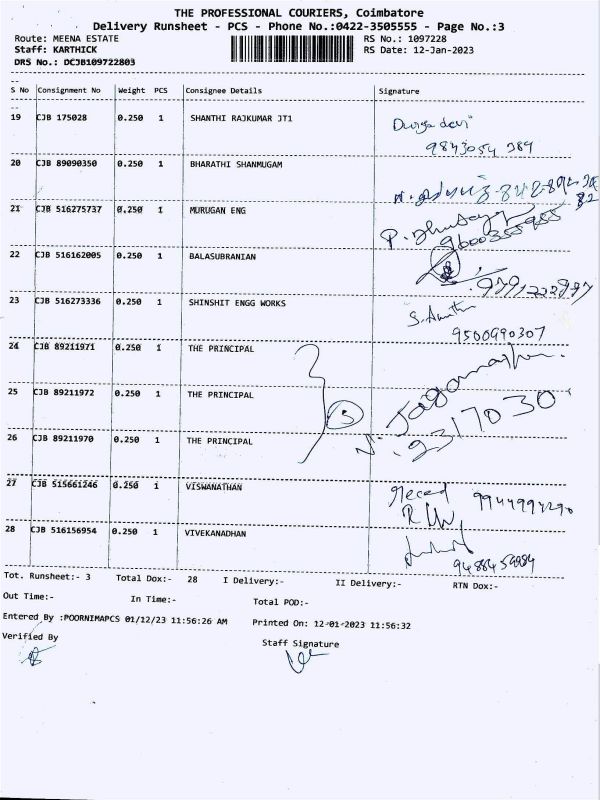 THE PROFESSIONAL COURIERS, Coimbatore
Delivery Runsheet - PCS - Phone No.:0422-3505555 - Page No.:3
Route: MEENA ESTATE RS No.: 1097228
Staff: KARTHICK RS Date: 12-Jan-2023
DRS No.: DCJB109722803
S No Consignment No Weight PCS Consignee Details Signature
19 CJB 175028 0.250 1 SHANTHI RAJKUMAR JT1 Durga devi
9843054 384
20 CJB 89090350 0.250 1 BHARATHI SHANMUGAM
21 CJB 516275737 0.250 1 MURUGAN ENG
22 CJB 516162005 0.250 1 BALASUBRANIAN
23 CJB 516273336 0.250 1 SHINSHIT ENGG WORKS
9500990307
24 CJB 89211971 0.250 1 THE PRINCIPAL
25 CJB 89211972 0.250 1 THE PRINCIPAL 3
26 CJB 89211970 0.250 1 THE PRINCIPAL
27 CJB 515661246 0.250 1 VISWANATHAN 9944994290
28 CJB 516156954 0.250 1 VIVEKANADHAN
Tot. Runsheet:- 3 Total Dox:- 28 I Delivery:- II Delivery:- RTN Dox:-
Out Time:- In Time:- Total POD:-
Entered By :POORNIMAPCS 01/12/23 11:56:26 AM Printed On: 12-01-2023 11:56:32
Verified By Staff Signature